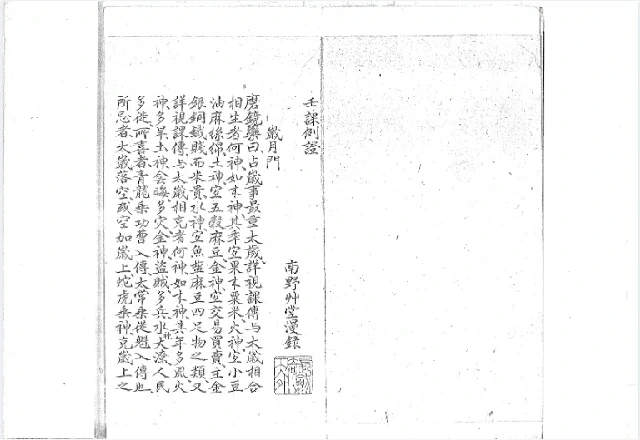 壬課例證
南野艸堂漫錄
歲月門
磨鏡藥曰占歲事最重太歲詳視課傳与太歲相合
相生者何神如木神其年宜果木粟米火神宜小豆
油麻絲綿土神宜五穀麻豆金神宜交易買賣主金
銀銅鐵賤而米貴水神宜魚鹽麻豆四足物之類又
詳視課傳与太歲相克者何神如木神其年多風火
神多旱土神多災金神盜賊多兵水大潦人民
多徙所喜者青龍乘功曹入傳太常乘從魁入傳也
所忌者太歲落空或空加歲上蛇虎乘神克歲上之